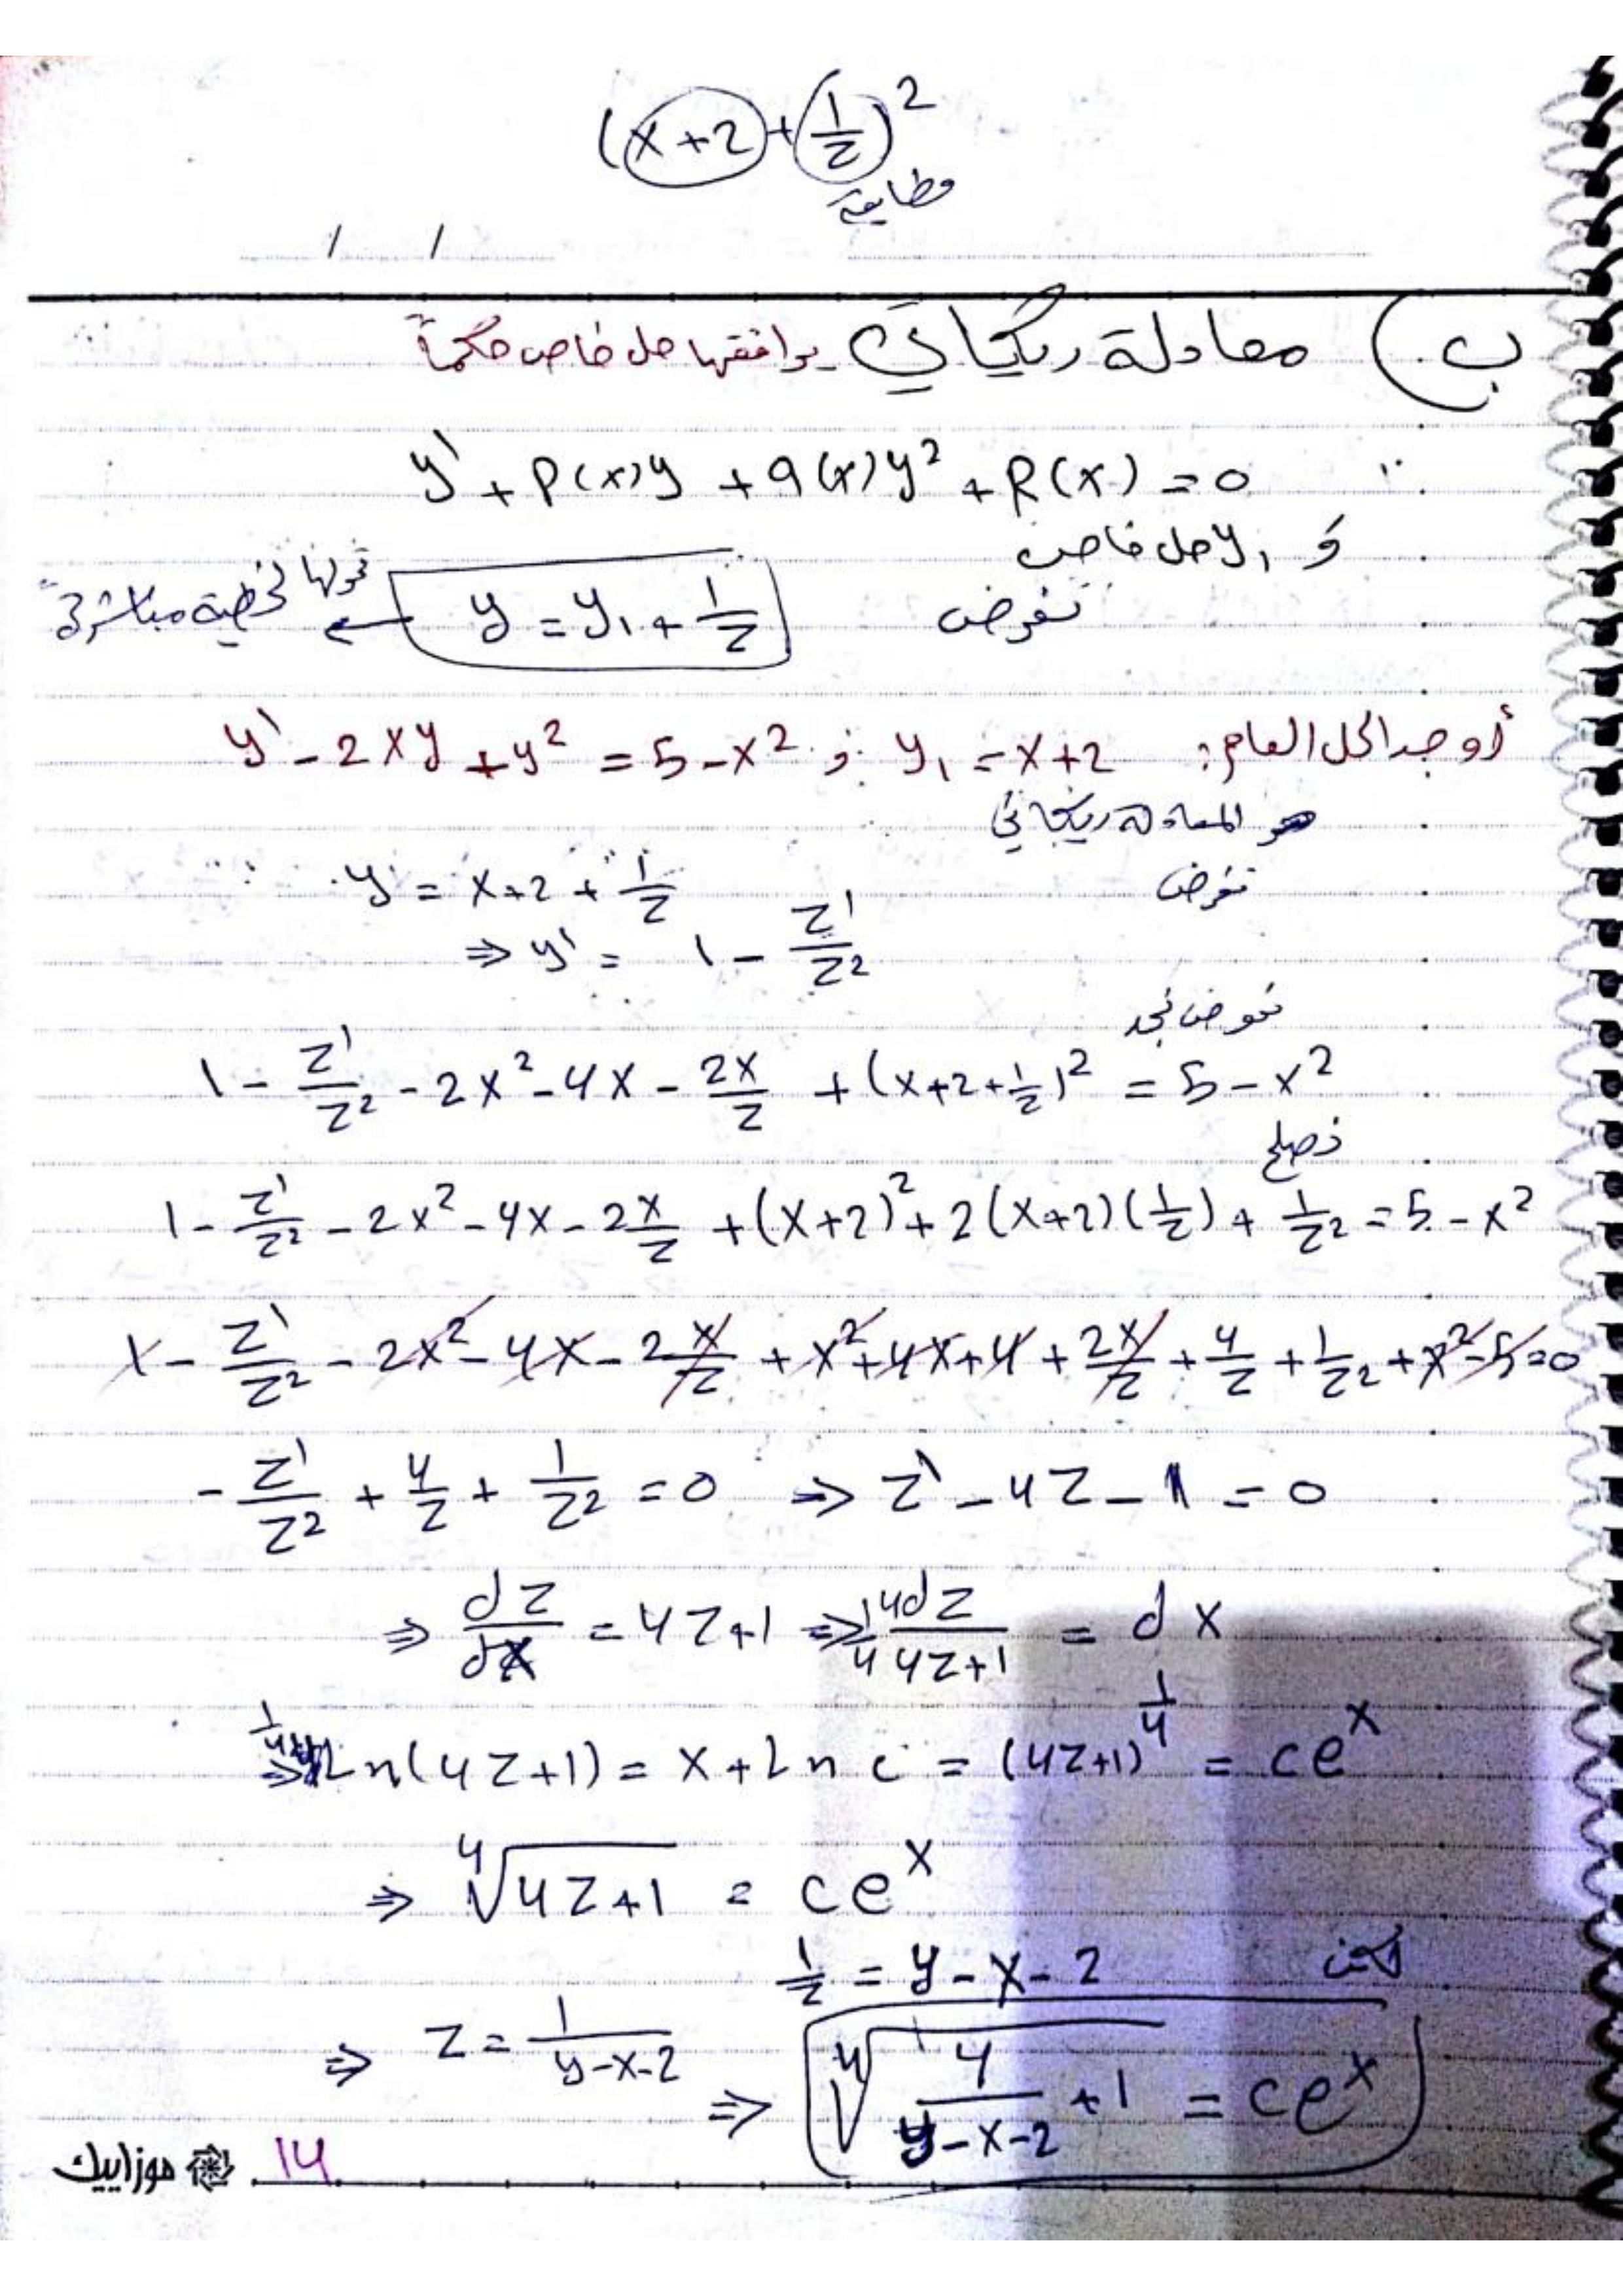 (x+2+1/z)²
مطابقة
/ /
ب) معادلة ريكاتي يوافقها حل خاص حكماً
y' + P(x)y + q(x)y² + R(x) = 0
و y₁ حل خاص
نفرض y = y₁ + 1/z ← نحولها لخطية مباشرة
أوجد الحل العام: y' - 2xy + y² = 5 - x² ; y₁ = x+2
المعادلة ريكاتي
نفرض y = x+2+1/z
⇒ y' = 1 - z'/z²
نعوض نجد
1 - z'/z² - 2x² - 4x - 2x/z + (x+2+1/z)² = 5 - x²
نصلح
1 - z'/z² - 2x² - 4x - 2x/z + (x+2)² + 2(x+2)(1/z) + 1/z² = 5 - x²
1 - z'/z² - 2x² - 4x - 2x/z + x² + 4x + 4 + 2x/z + 4/z + 1/z² + x² - 5 = 0
- z'/z² + 4/z + 1/z² = 0 ⇒ z' - 4z - 1 = 0
⇒ dz/dx = 4z+1 ⇒ 1/4 4dz/4z+1 = dx
⇒ 1/4 Ln(4z+1) = x + Ln c = (4z+1)^1/4 = ce^x
⇒ ⁴√4z+1 = ce^x
لكن 1/z = y - x - 2
⇒ z = 1/y-x-2 ⇒ ⁴√4/y-x-2 + 1 = ce^x
موزاييك 14